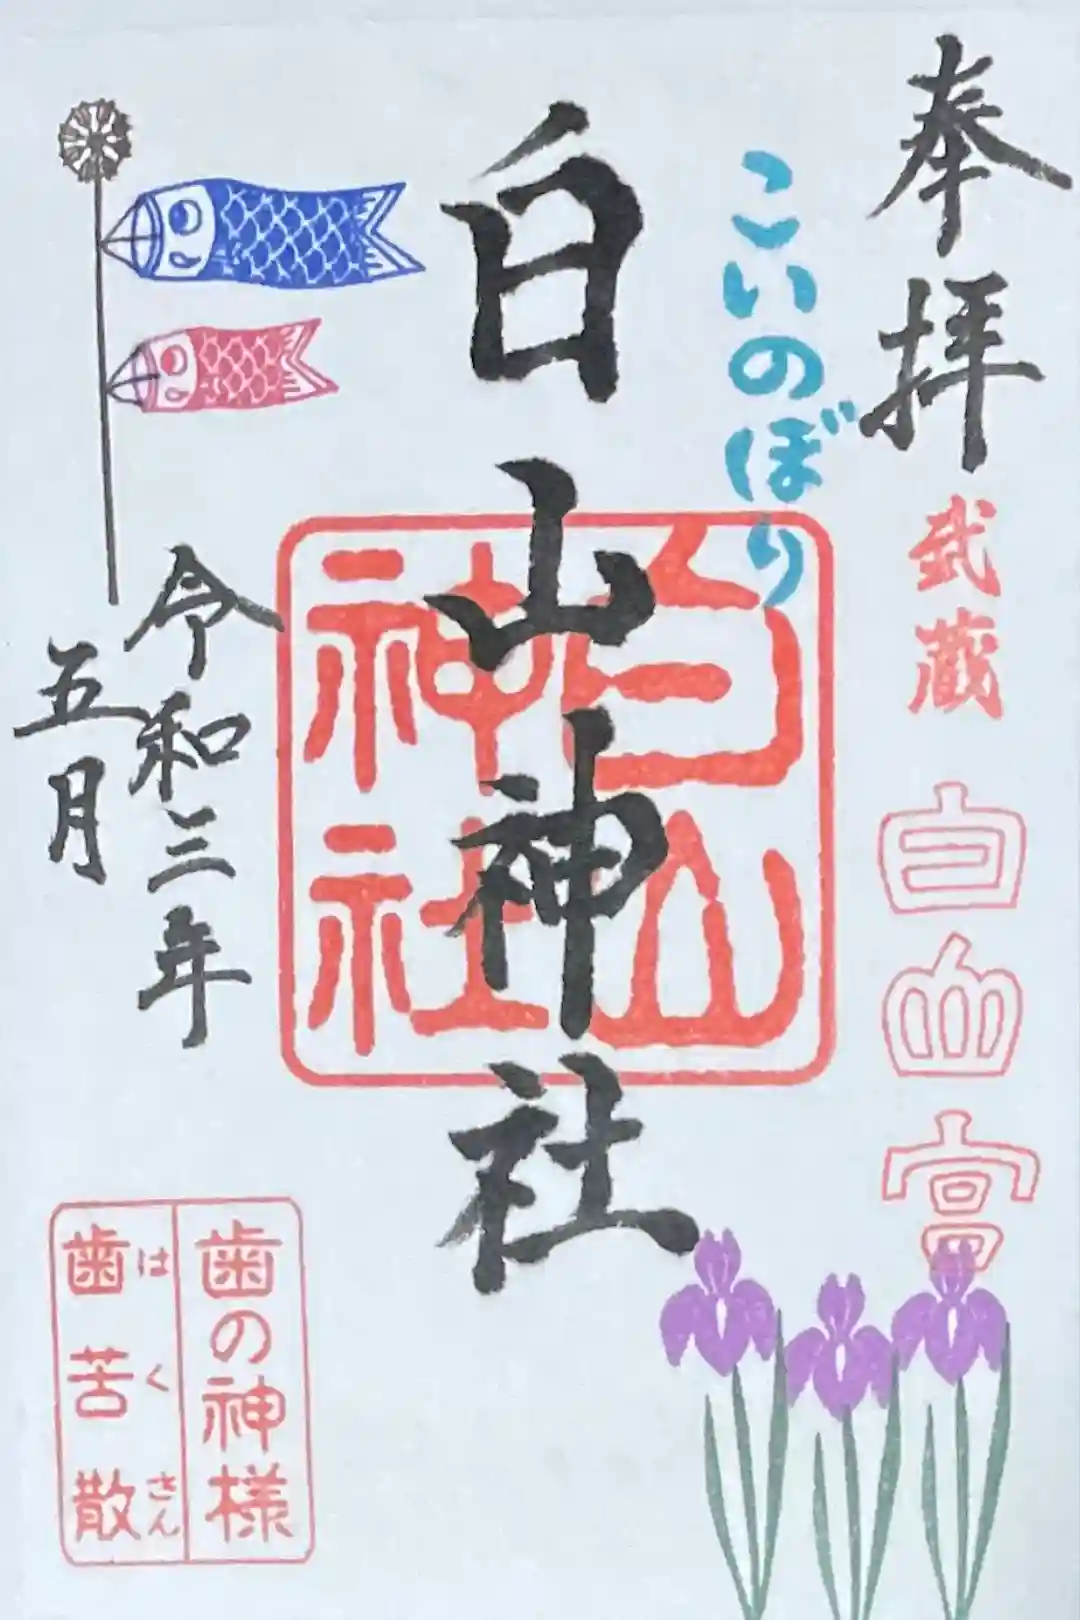 奉拝
武蔵
白山宮
こいのぼり
白山神社
白山
神社
令和三年
五月
歯の神様
はくさん
歯苦散